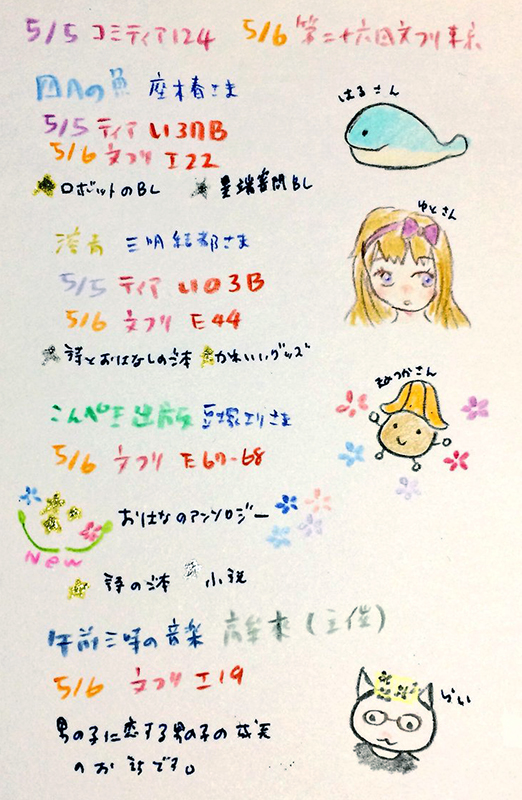 5/5 コミティア124 5/6 第二十六回文フリ東京
四月の魚 座木春さま
はるさん
5/5 ティア い37B
5/6 文フリ エ22
ロボットのBL BL
三明結都さま
ゆとさん
5/5 ティア い03B
5/6 文フリ E44
詩とおはなしの本 かわいいグッズ
まめつかさん
こんぺき出版 豆塚エリさま
5/6 文フリ E67-68
おはなのアンソロジー
New
詩の本 小説
午前三時の音楽 (主催)
5/6 文フリ エ19
らい
男の子に恋する男の子の
のお話です。